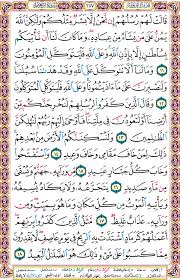 ٢٥٧
قَالَتْ لَهُمْ رُسُلُهُمْ إِن نَّحْنُ إِلَّا بَشَرٌ مِّثْلُكُمْ وَلَٰكِنَّ ٱللَّهَ
يَمُنُّ عَلَىٰ مَن يَشَآءُ مِنْ عِبَادِهِۦ وَمَا كَانَ لَنَآ أَن نَّأْتِيَكُم
بِسُلْطَٰنٍ إِلَّا بِإِذْنِ ٱللَّهِ وَعَلَى ٱللَّهِ فَلْيَتَوَكَّلِ ٱلْمُؤْمِنُونَ
١١ وَمَا لَنَآ أَلَّا نَتَوَكَّلَ عَلَى ٱللَّهِ وَقَدْ هَدَىٰنَا سُبُلَنَا
وَلَنَصْبِرَنَّ عَلَىٰ مَآ ءَاذَيْتُمُونَا وَعَلَى ٱللَّهِ فَلْيَتَوَكَّلِ ٱلْمُتَوَكِّلُونَ
١٢ وَقَالَ ٱلَّذِينَ كَفَرُوا۟ لِرُسُلِهِمْ لَنُخْرِجَنَّكُم مِّنْ أَرْضِنَآ
أَوْ لَتَعُودُنَّ فِى مِلَّتِنَا فَأَوْحَىٰٓ إِلَيْهِمْ رَبُّهُمْ لَنُهْلِكَنَّ
ٱلظَّٰلِمِينَ ١٣ وَلَنُسْكِنَنَّكُمُ ٱلْأَرْضَ مِنۢ بَعْدِهِمْ
ذَٰلِكَ لِمَنْ خَافَ مَقَامِى وَخَافَ وَعِيدِ ١٤ وَٱسْتَفْتَحُوا۟
وَخَابَ كُلُّ جَبَّارٍ عَنِيدٍ ١٥ مِّن وَرَآئِهِۦ جَهَنَّمُ وَيُسْقَىٰ
مِن مَّآءٍ صَدِيدٍ ١٦ يَتَجَرَّعُهُۥ وَلَا يَكَادُ يُسِيغُهُۥ
وَيَأْتِيهِ ٱلْمَوْتُ مِن كُلِّ مَكَانٍ وَمَا هُوَ بِمَيِّتٍ وَمِن
وَرَآئِهِۦ عَذَابٌ غَلِيظٌ ١٧ مَّثَلُ ٱلَّذِينَ كَفَرُوا۟ بِرَبِّهِمْ
أَعْمَٰلُهُمْ كَرَمَادٍ ٱشْتَدَّتْ بِهِ ٱلرِّيحُ فِى يَوْمٍ عَاصِفٍ لَّا يَقْدِرُونَ
مِمَّا كَسَبُوا۟ عَلَىٰ شَىْءٍ ذَٰلِكَ هُوَ ٱلضَّلَٰلُ ٱلْبَعِيدُ ١٨